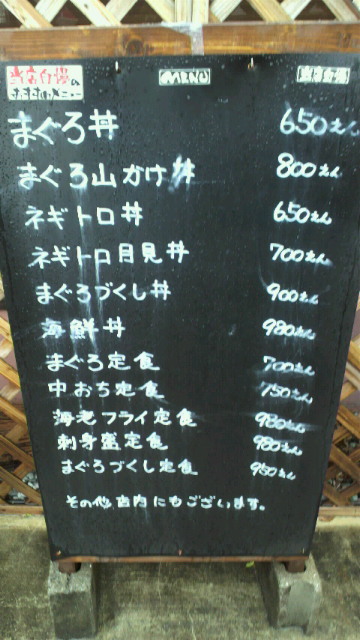 当店自慢の
おすすめメニュー
MENU
当店自慢
まぐろ丼 650えん
まぐろ山かけ丼 800えん
ネギトロ丼 650えん
ネギトロ月見丼 700えん
まぐろづくし丼 900えん
海鮮丼 980えん
まぐろ定食 700えん
中おち定食 750えん
海老フライ定食 980えん
刺身盛定食 980えん
まぐろづくし定食 950えん
その他店内にもございます。